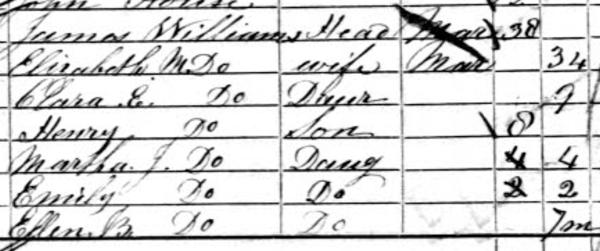 John House
James Williams Head Mar 38
Elizabeth M. Do wife Mar 34
Clara E. Do Daur 9
Henry Do Son 8
Martha J. Do Daug 4 4
Emily Do Do 2 2
Ellen B. Do Do 7m